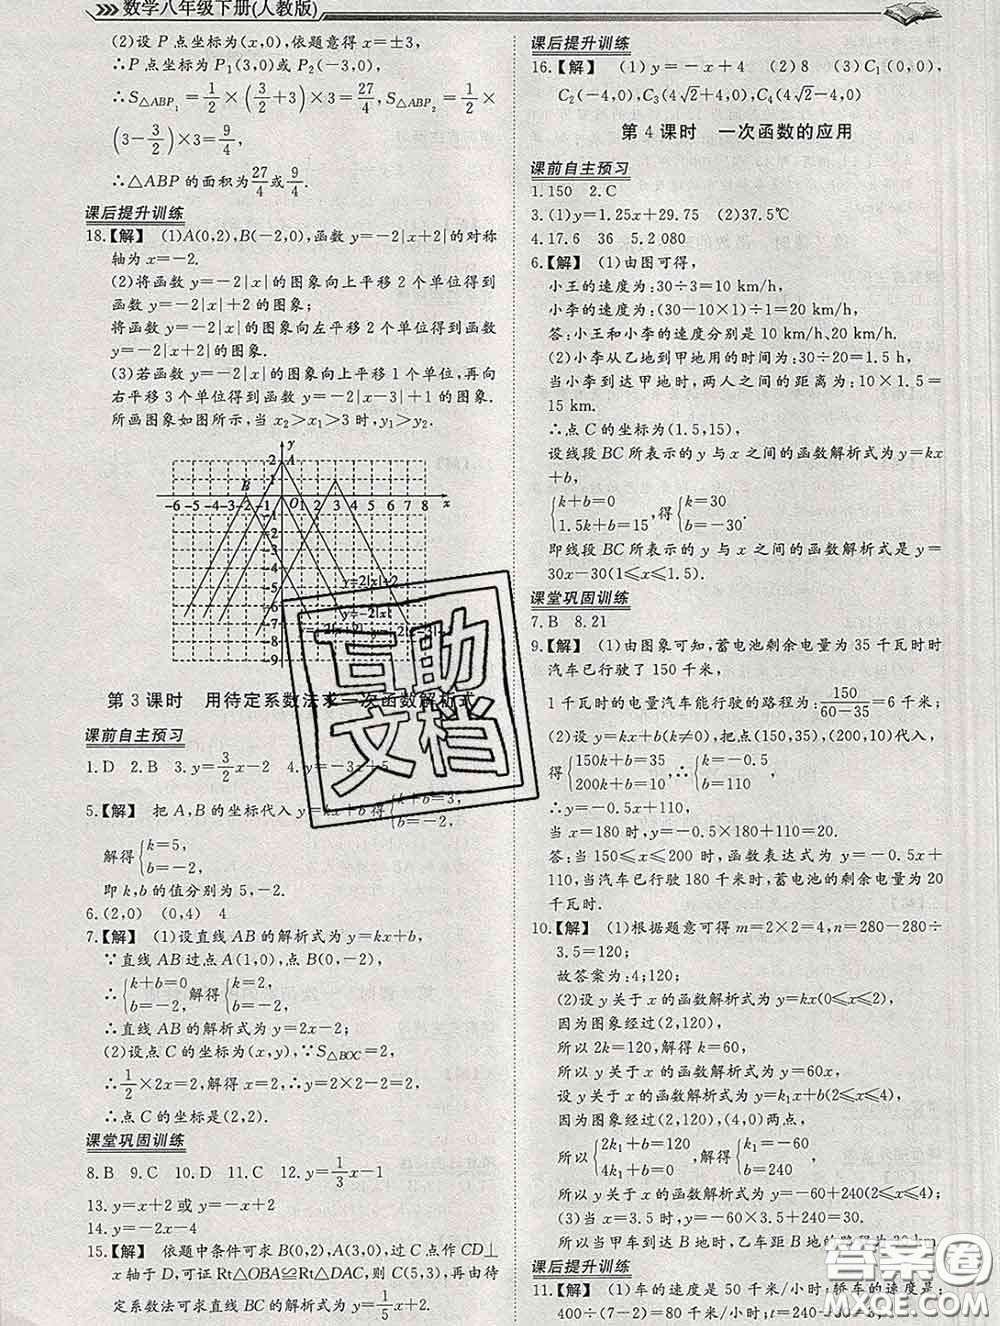 数学八年级下册(人教版)
(2)设 P 点坐标为(x,0),依题意得 x=±3,
∴P 点坐标为 P₁(3,0)或 P₂(-3,0),
∴S△ABP₁=1/2×(3/2+3)×3=27/4,S△ABP₂=1/2×
(3-3/2)×3=9/4,
∴△ABP 的面积为27/4或9/4.
课后提升训练
18.【解】 (1)A(0,2),B(-2,0),函数 y=-2|x+2|的对称
轴为 x=-2.
(2)将函数 y=-2|x|的图象向上平移 2 个单位得到
函数 y=-2|x|+2 的图象;
将函数 y=-2|x|的图象向左平移 2 个单位得到函数
y=-2|x+2|的图象.
(3)若函数 y=-2|x|的图象向上平移 1 个单位,再向
右平移 3 个单位得到函数 y=-2|x-3|+1 的图象.
所画图象如图所示,当 x₂>x₁>3 时,y₁>y₂.
y
2 A
1
B O
-6 -5 -4 -3 -2 -1 1 2 3 4 5 6 7 8 x
y=-2|x|+2
y=-2|x|
第 3 课时 用待定系数法求一次函数解析式
课前自主预习
1.D 2.B 3.y=3/2x-2 4.
5.【解】 把 A,B 的坐标代入 y=kx+b 得{k+b=3, b=-2,
解得{k=5, b=-2,
即 k,b 的值分别为 5,-2.
6.(2,0) (0,4) 4
7.【解】 (1)设直线 AB 的解析式为 y=kx+b,
∵直线 AB 过点 A(1,0),点 B(0,-2),
∴{k+b=0 b=-2 解得{k=2 b=-2,
∴直线 AB 的解析式为 y=2x-2;
(2)设点 C 的坐标为(x,y),∵S△BOC=2,
∴1/2×2x=2,解得 x=2,∴y=2×2-2=2,
∴点 C 的坐标是(2,2).
课堂巩固训练
8.B 9.C 10.D 11.C 12.y=1/3x-1
13.y=x+2 或 y=-x+2
14.y=-2x-4
15.【解】 依题中条件可求 B(0,2),A(3,0),过 C 点作 CD⊥
x 轴于 D,可证 Rt△OBA≌Rt△DAC,则 C(5,3),再由待
定系数法可求直线 BC 的解析式为 y=1/5x+2.
课后提升训练
16.【解】 (1)y=-x+4 (2)8 (3)C₁(0,0),
C₂(-4,0),C₃(4√2+4,0),C₄(4√2-4,0)
第 4 课时 一次函数的应用
课前自主预习
1.150 2.C
3.(1)y=1.25x+29.75 (2)37.5℃
4.17.6 36 5.2 080
6.【解】 (1)由图可得,
小王的速度为:30÷3=10 km/h,
小李的速度为:(30-10×1)÷1=20 km/h,
答:小王和小李的速度分别是 10 km/h、20 km/h.
(2)小李从乙地到甲地用的时间为:30÷20=1.5 h,
当小李到达甲地时,两人之间的距离为:10×1.5=
15 km.
∴点 C 的坐标为(1.5,15),
设线段 BC 所表示的 y 与 x 之间的函数解析式为 y=kx
+b,
{k+b=0 1.5k+b=15,得{k=30 b=-30.
即线段 BC 所表示的 y 与 x 之间的函数解析式是 y=
30x-30(1⩽x⩽1.5).
课堂巩固训练
7.B 8.21
9.【解】 (1)由图象可知,蓄电池剩余电量为 35 千瓦时时
汽车已行驶了 150 千米,
1 千瓦时的电量汽车能行驶的路程为:150/(60-35)=6 千米;
(2)设 y=kx+b(k≠0),把点(150,35),(200,10)代入,
得{150k+b=35 200k+b=10 ∴{k=-0.5 b=110 ,
∴y=-0.5x+110,
当 x=180 时,y=-0.5×180+110=20.
答:当 150⩽x⩽200 时,函数表达式为 y=-0.5x+
110,当汽车已行驶 180 千米时,蓄电池的剩余电量为 20
千瓦时.
10.【解】 (1)根据题意可得 m=2×2=4,n=280-280÷
3.5=120;
故答案为:4;120;
(2)设 y 关于 x 的函数解析式为 y=kx(0⩽x⩽2),
因为图象经过(2,120),
所以 2k=120,解得 k=60,
所以 y 关于 x 的函数解析式为 y=60x,
设 y 关于 x 的函数解析式为 y=k₁x+b(2⩽x⩽4),
因为图象经过(2,120),(4,0)两点,
所以{2k₁+b=120 4k₁+b=0 ,解得{k₁=-60 b=240 ,
所以 y 关于 x 的函数解析式为 y=-60x+240(2⩽x⩽4);
(3)当 x=3.5 时,y=-60×3.5+240=30.
所以当甲车到达 B 地时,乙车距 B 地的路程为
课后提升训练
11.【解】 (1)车的速度是 50 千米/小时;轿车的速度是:
400÷(7-2)=80 千米/小时;t=240
互助文档
答案圈
MXQE.COM